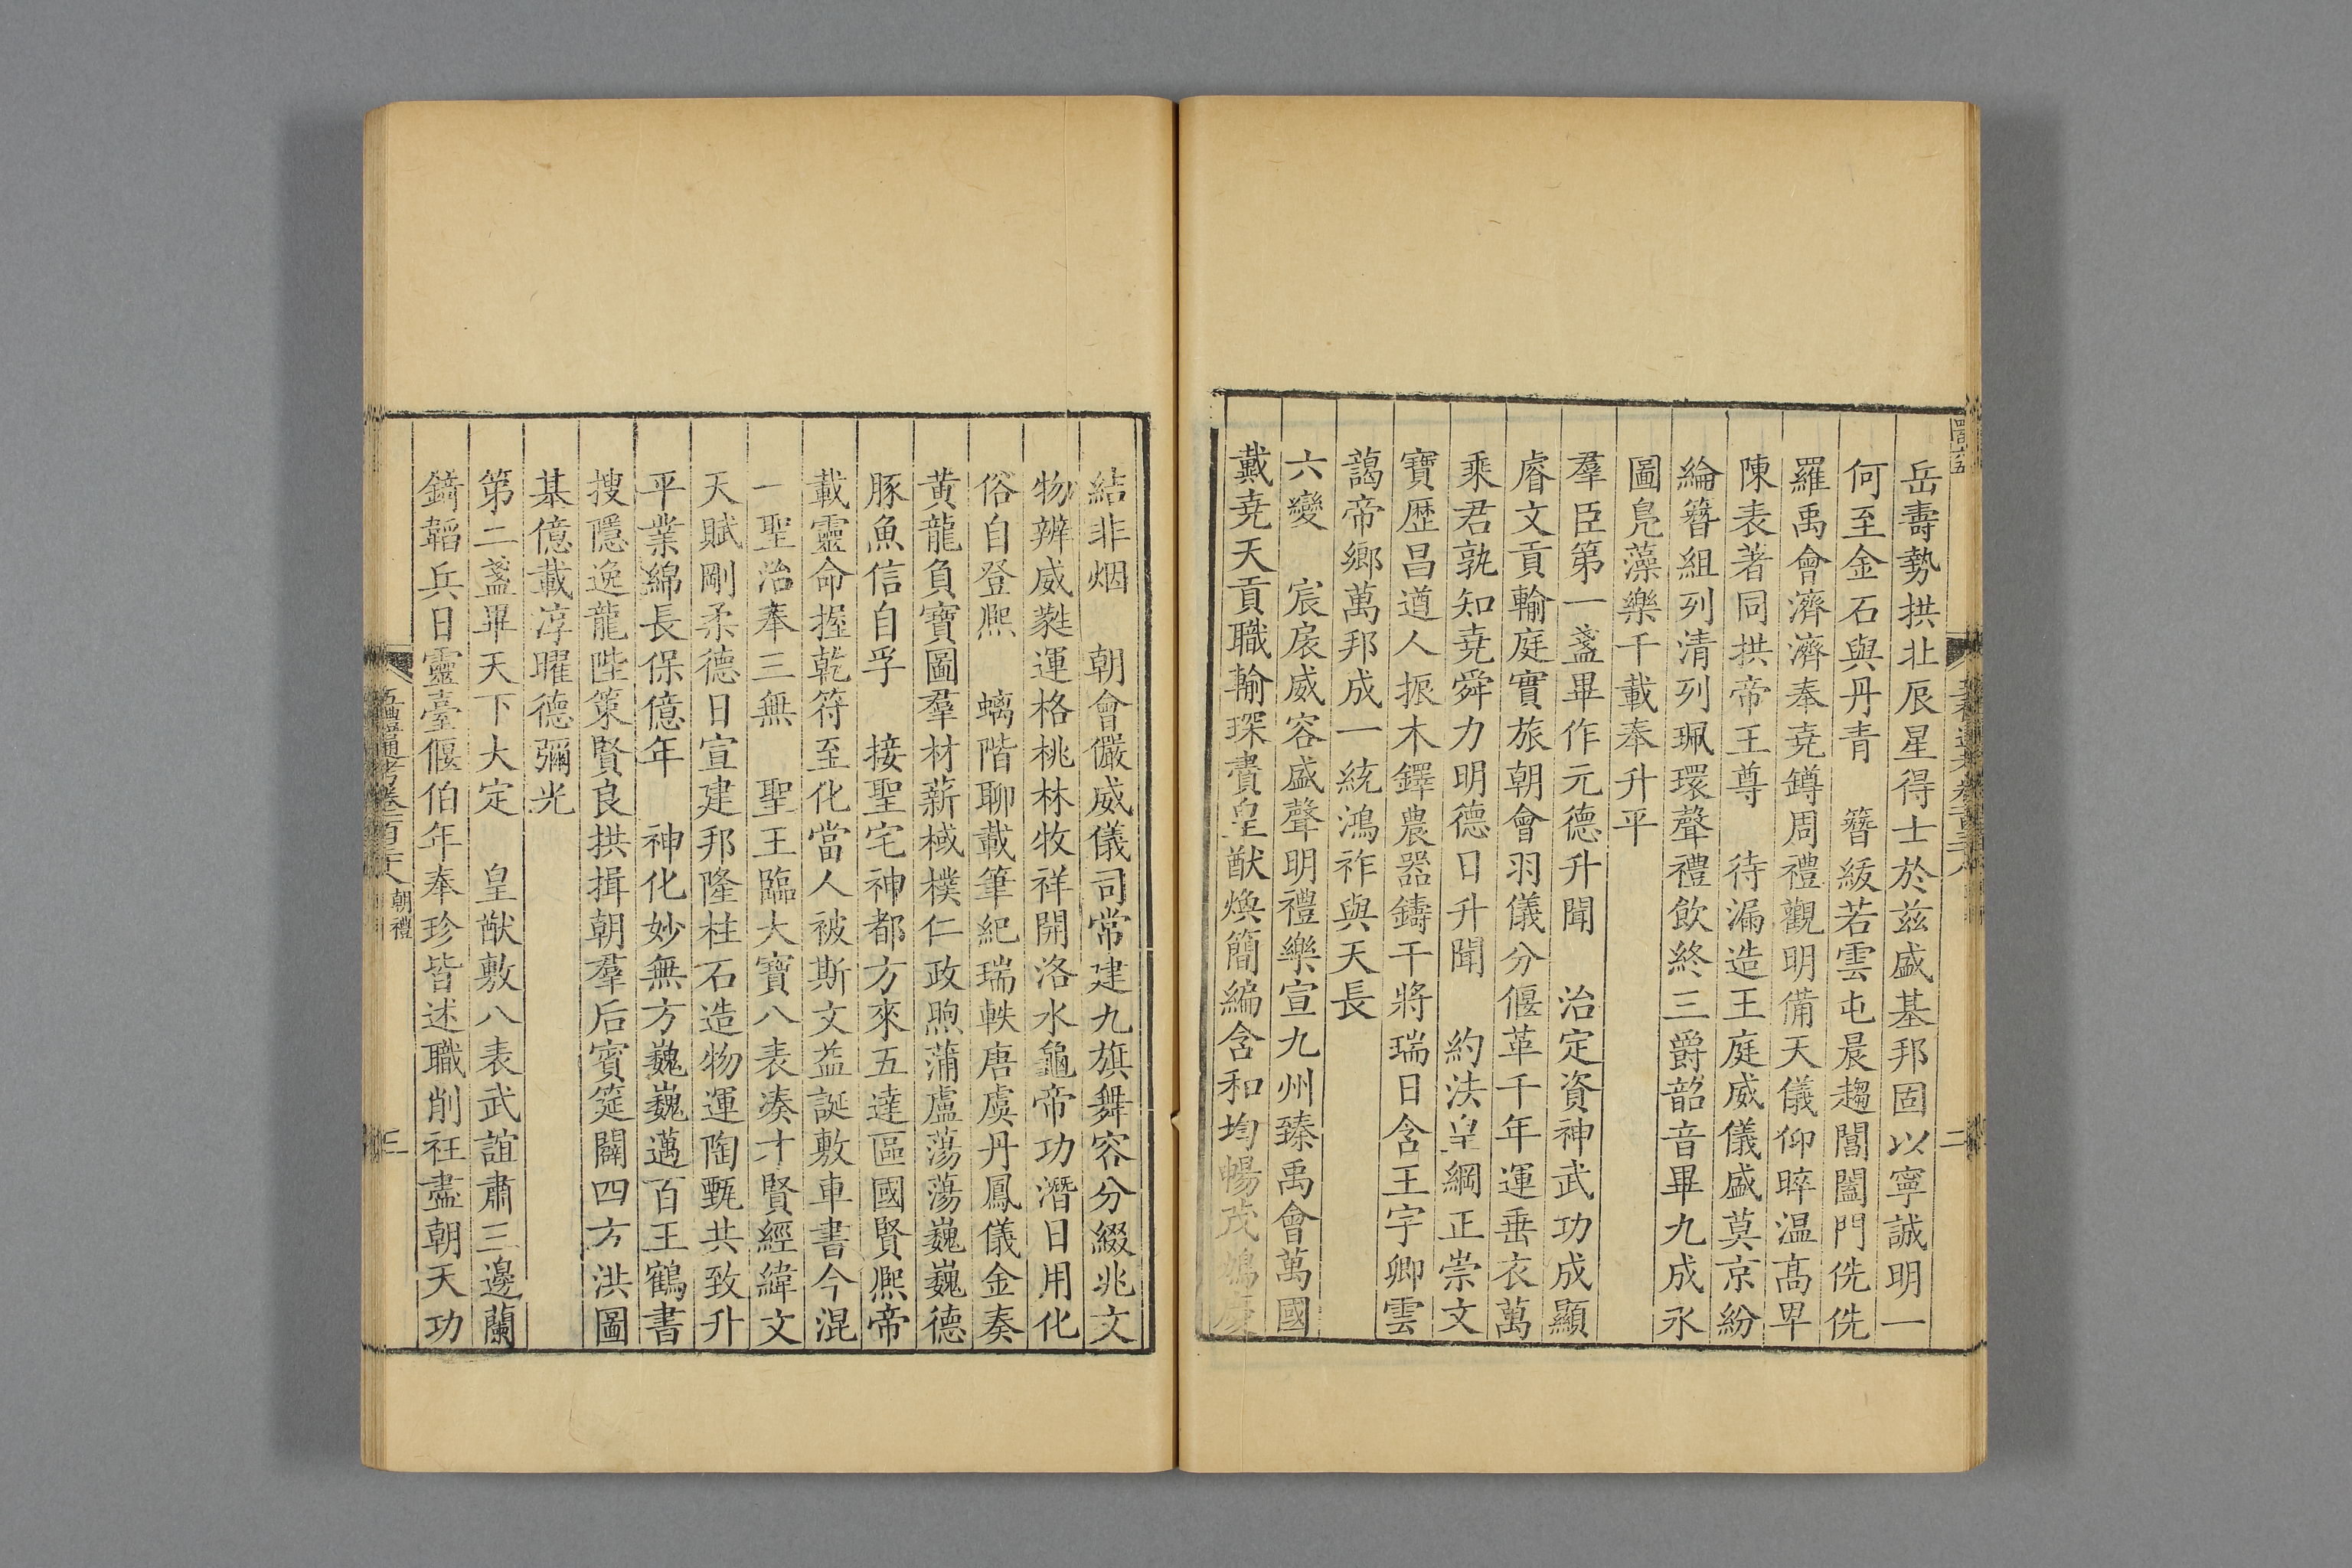 岳壽勢拱北辰星得士於兹盛基邦固以寧誠明一
何至金石與丹青　簪紱若雲屯晨趨閶闔門侁侁
羅禹會濟濟奉堯罇周禮觀明備天儀仰睟温髙卑
陳表著同拱帝王尊　待漏造王庭威儀盛莫京紛
綸簪組列清列珮環聲禮飲終三爵韶音畢九成永
圖鳧藻樂千載奉升平
羣臣第一盞畢作元德升聞　治定資神武功成顯
睿文貢輸庭實旅朝會羽儀分偃革千年運垂衣萬
乘君孰知堯舜力明德日升聞　約法皇綱正崇文
寶歴昌遒人振木鐸農器鑄干將瑞日含王宇卿雲
藹帝鄉萬邦成一統鴻祚與天長
六變　宸扆威容盛聲明禮樂宣九州臻禹會萬國
戴堯天貢職輸琛賮皇猷煥簡編含和均暢茂鴻慶
結非烟　朝會儼威儀司常建九旗舞容分綴兆文
物辨威蕤運格桃林牧祥開洛水龜帝功潛日用化
俗自登熈　螭階聊載筆紀瑞軼唐虞丹鳳儀金奏
黄龍負寶圖羣材薪棫樸仁政煦蒲盧蕩蕩巍巍德
豚魚信自孚　接聖宅神都方來五達區國賢熈帝
載靈命握乾符至化當人被斯文益誕敷車書今混
一聖治奉三無　聖王臨大寶八表湊才賢經緯文
天賦剛柔德日宣建邦隆柱石造物運陶甄共致升
平業綿長保億年　神化妙無方巍巍邁百王鶴書
搜隱逸龍陛策賢良拱揖朝羣后賓筵闢四方洪圖
基億載淳曜德彌光
第二盞畢天下大定　皇猷敷八表武誼肅三邊蘭
錡韜兵日靈臺偃伯年奉珍皆述職削衽盡朝天功
五禮通考卷一百三十六　朝禮
三